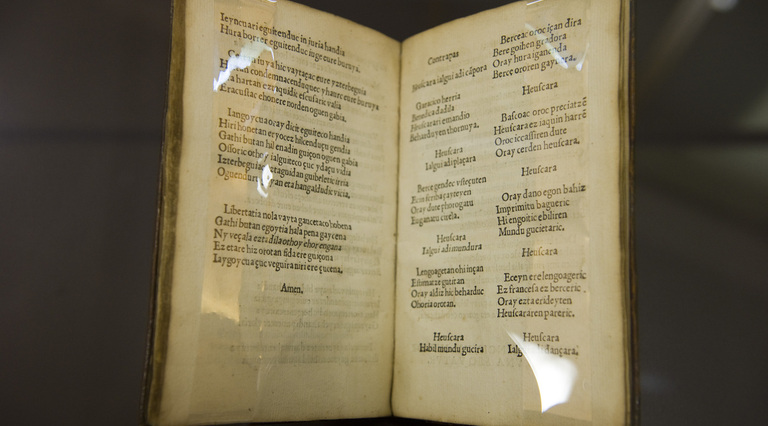 Ieyncuari eguitenduc in iuria handia
Hura borrer eguitenduc iuge eure buruya.
hic vaytaçac eure yzterbeguia
condemnacenduquec yhaurc eure buruya
hartan ezta quidic escusaric valia
Eracustac ehonere norden oguen gabia.
Iangoycua oray dicit eguiteco handia
Hiri honetan eryocez hilcenduçu gendia
Gathi butan hil enadin guiçon oguen gabia
Ossoric othoy ialguiteco çuc ydaçu valia
Izterbeguiac eztaguidan guibeletic irria
eta hangaldudic vicia.
Libertatia nola vayta gauçetaco hobena
Gathi butan egoytia hala pena gaycena
Ny veçala eztadila othoy ehor engana
Ez etare hiz orotan fida ere guiçona
Iaygoycua çuc veguira niri ere çucena.
Amen.
Contrapas
Heuſcara ialgui adi cãpora
Garacico herria
Benedica dadila
Heuſcarari emandio
Behardu yen thornuya.
Heuſcara
Ialgui adi plaçara
Berce gendec vſteçuten
Ecin ſcriba çayteyen
Oray dute phorogatu
Enganatu cirela.
Heuſcara
Ialgui adi mundura
Lengoagetan ohi inçan
Eſtimatze gutitan
Oray aldiz hic beharduc
Ohoria orotan.
Heuſcara
Habil mundu gucira
Berceac oroc içan dira
Bere goihen gradora
Oray hura iganenda
Berce ororen gaynera.
Heuſcara
Baſcoac oroc preciatzẽ
Heuſcara ez iaquin harrẽ
Oroc iccaſſiren dute
Oray cerden heuſcara.
Heuſcara
Oray dano egon bahiz
Imprimitu bagueric
Hi engoitic ebiliren
Mundu gucietaric.
Heuſcara
Eceyn ere lengoageric
Ez franceſa ez berceric
Oray ezta erideyten
Heuſcararen pareric.
Heuſcara
Ialgui adi dançara.